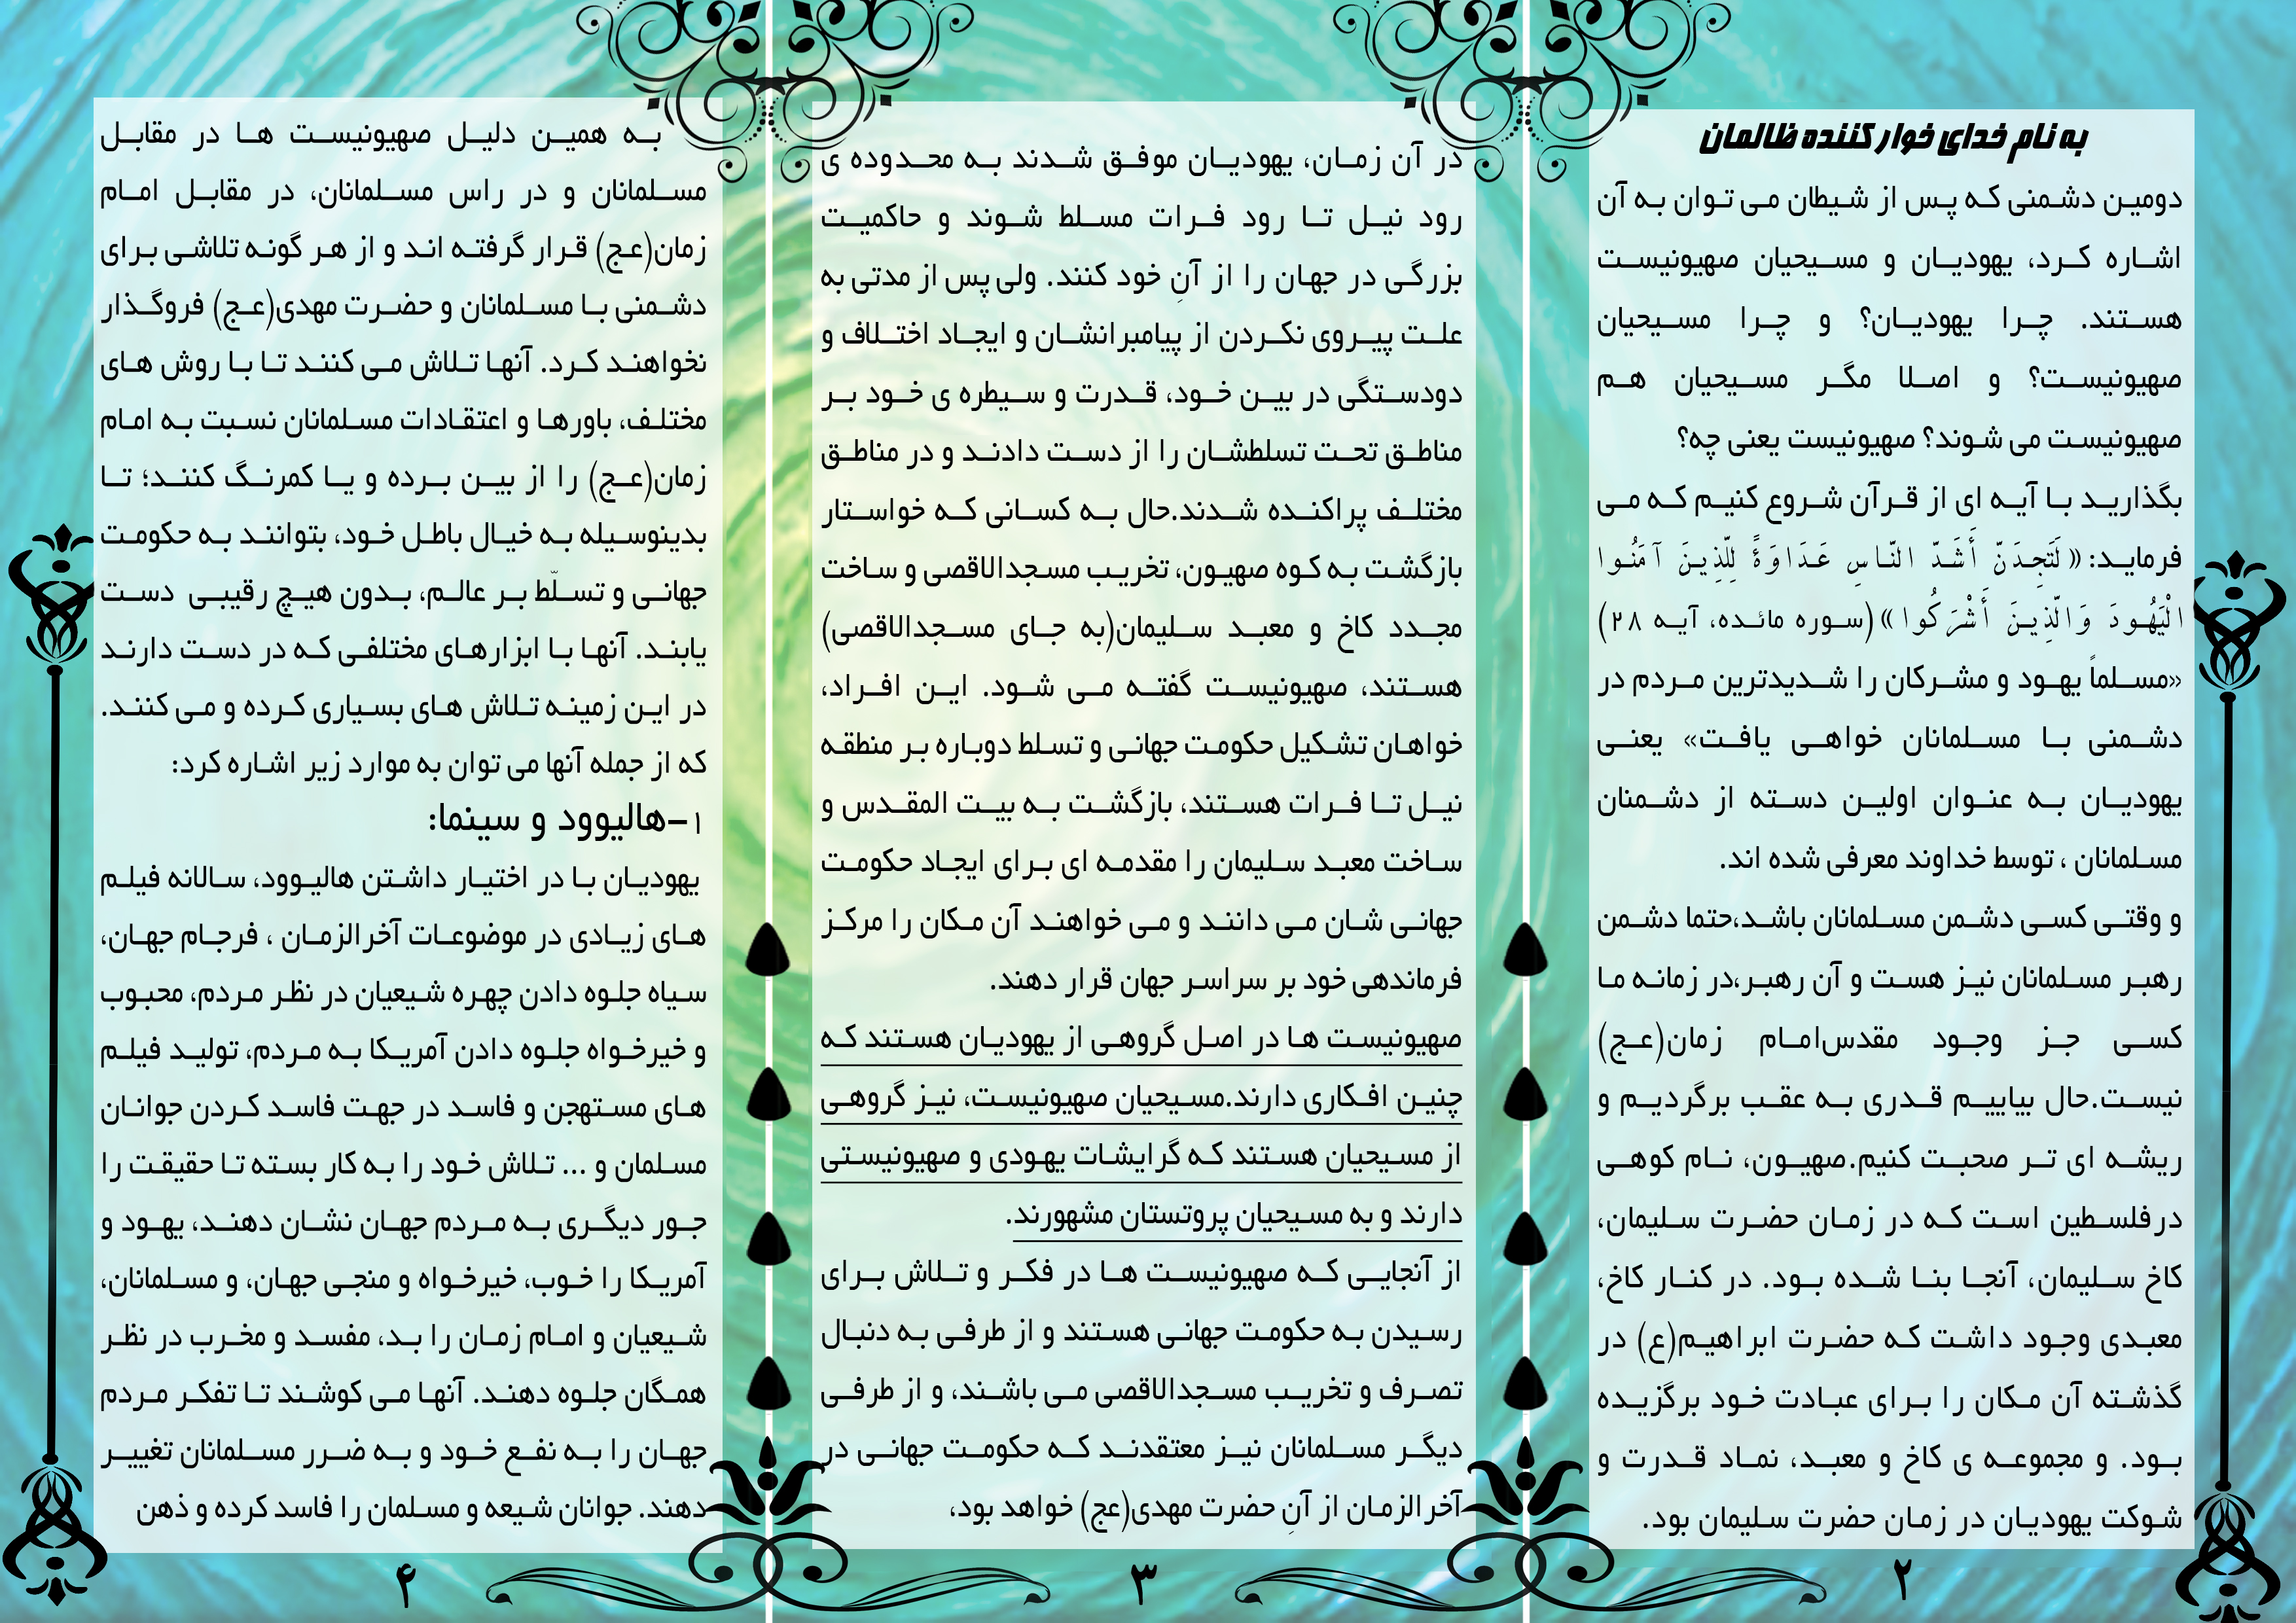 به نام خدای خوار کننده ظالمان
دومین دشمنی که پس از شیطان می توان به آن
اشاره کرد، یهودیان و مسیحیان صهیونیست
هستند. چرا یهودیان؟ و چرا مسیحیان
صهیونیست؟ و اصلا مگر مسیحیان هم
صهیونیست می شوند؟ صهیونیست یعنی چه؟
بگذارید با آیه ای از قرآن شروع کنیم که می
فرماید: « لَتَجِدَنَّ أَشَدَّ النَّاسِ عَدَاوَةً لِلَّذِينَ آمَنُوا
الْيَهُودَ وَالَّذِينَ أَشْرَكُوا » (سوره مائده، آیه ۲۸)
«مسلماً یهود و مشرکان را شدیدترین مردم در
دشمنی با مسلمانان خواهی یافت» یعنی
یهودیان به عنوان اولین دسته از دشمنان
مسلمانان ، توسط خداوند معرفی شده اند.
و وقتی کسی دشمن مسلمانان باشد،حتما دشمن
رهبر مسلمانان نیز هست و آن رهبر،در زمانه ما
کسی جز وجود مقدس‌امام زمان(عج)
نیست.حال بیاییم قدری به عقب برگردیم و
ریشه ای تر صحبت کنیم.صهیون، نام کوهی
درفلسطین است که در زمان حضرت سلیمان،
کاخ سلیمان، آنجا بنا شده بود. در کنار کاخ،
معبدی وجود داشت که حضرت ابراهیم(ع) در
گذشته آن مکان را برای عبادت خود برگزیده
بود. و مجموعه ی کاخ و معبد، نماد قدرت و
شوکت یهودیان در زمان حضرت سلیمان بود.
۲
در آن زمان، یهودیان موفق شدند به محدوده ی
رود نیل تا رود فرات مسلط شوند و حاکمیت
بزرگی در جهان را از آنِ خود کنند. ولی پس از مدتی به
علت پیروی نکردن از پیامبرانشان و ایجاد اختلاف و
دودستگی در بین خود، قدرت و سیطره ی خود بر
مناطق تحت تسلطشان را از دست دادند و در مناطق
مختلف پراکنده شدند.حال به کسانی که خواستار
بازگشت به کوه صهیون، تخریب مسجدالاقصی و ساخت
مجدد کاخ و معبد سلیمان(به جای مسجدالاقصی)
هستند، صهیونیست گفته می شود. این افراد،
خواهان تشکیل حکومت جهانی و تسلط دوباره بر منطقه
نیل تا فرات هستند، بازگشت به بیت المقدس و
ساخت معبد سلیمان را مقدمه ای برای ایجاد حکومت
جهانی شان می دانند و می خواهند آن مکان را مرکز
فرماندهی خود بر سراسر جهان قرار دهند.
صهیونیست ها در اصل گروهی از یهودیان هستند که
چنین افکاری دارند.مسیحیان صهیونیست، نیز گروهی
از مسیحیان هستند که گرایشات یهودی و صهیونیستی
دارند و به مسیحیان پروتستان مشهورند.
از آنجایی که صهیونیست ها در فکر و تلاش برای
رسیدن به حکومت جهانی هستند و از طرفی به دنبال
تصرف و تخریب مسجدالاقصی می باشند، و از طرفی
دیگر مسلمانان نیز معتقدند که حکومت جهانی در
آخرالزمان از آنِ حضرت مهدی(عج) خواهد بود،
۳
به همین دلیل صهیونیست ها در مقابل
مسلمانان و در راس مسلمانان، در مقابل امام
زمان(عج) قرار گرفته اند و از هر گونه تلاشی برای
دشمنی با مسلمانان و حضرت مهدی(عج) فروگذار
نخواهند کرد. آنها تلاش می کنند تا با روش های
مختلف، باورها و اعتقادات مسلمانان نسبت به امام
زمان(عج) را از بین برده و یا کمرنگ کنند؛ تا
بدینوسیله به خیال باطل خود، بتوانند به حکومت
جهانی و تسلّط بر عالم، بدون هیچ رقیبی دست
یابند. آنها با ابزارهای مختلفی که در دست دارند
در این زمینه تلاش های بسیاری کرده و می کنند.
که از جمله آنها می توان به موارد زیر اشاره کرد:
۱-هالیوود و سینما:
یهودیان با در اختیار داشتن هالیوود، سالانه فیلم
های زیادی در موضوعات آخرالزمان ، فرجام جهان،
سیاه جلوه دادن چهره شیعیان در نظر مردم، محبوب
و خیرخواه جلوه دادن آمریکا به مردم، تولید فیلم
های مستهجن و فاسد در جهت فاسد کردن جوانان
مسلمان و ... تلاش خود را به کار بسته تا حقیقت را
جور دیگری به مردم جهان نشان دهند، یهود و
آمریکا را خوب، خیرخواه و منجی جهان، و مسلمانان،
شیعیان و امام زمان را بد، مفسد و مخرب در نظر
همگان جلوه دهند. آنها می کوشند تا تفکر مردم
جهان را به نفع خود و به ضرر مسلمانان تغییر
دهند. جوانان شیعه و مسلمان را فاسد کرده و ذهن
۴